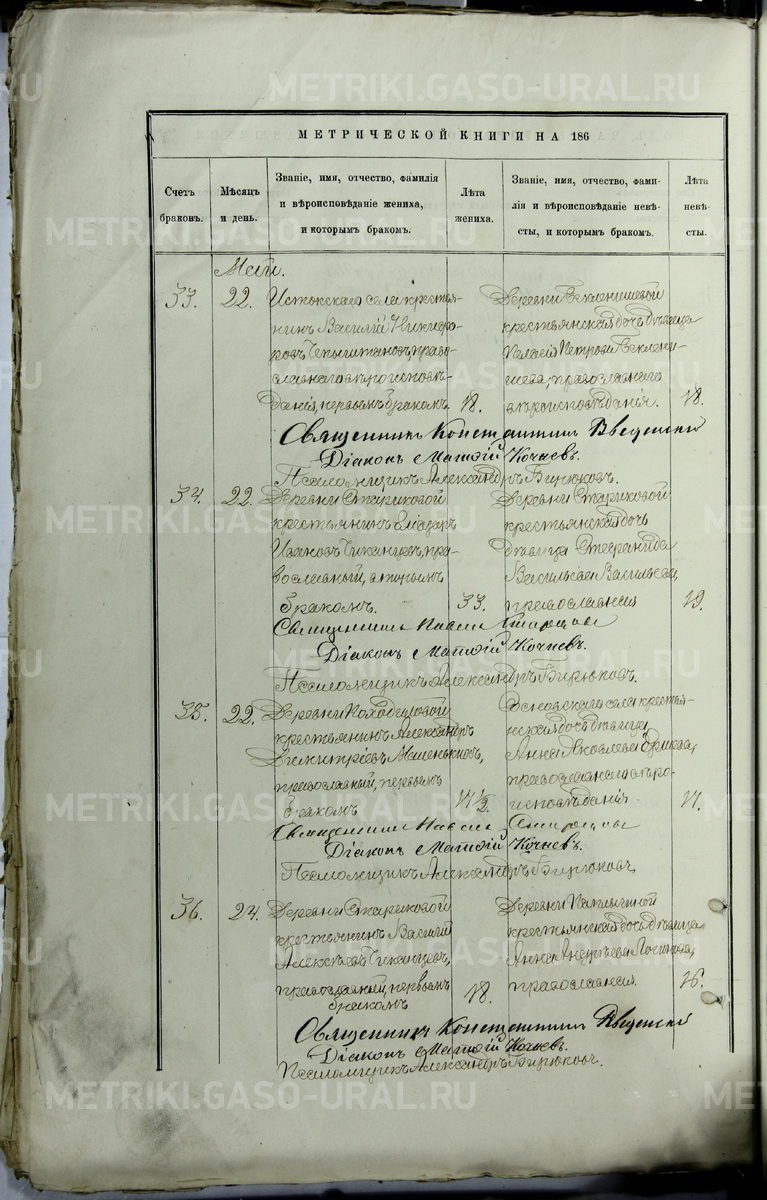 METRIKI.GASO-URAL.RU
МЕТРИЧЕСКОЙ КНИГИ НА 186
Счетъ браковъ.
Мѣсяцъ и день.
Званіе, имя, отчество, фамилія и вѣроисповѣданіе жениха, и которымъ бракомъ.
Лѣта жениха.
Званіе, имя, отчество, фами-
лія и вѣроисповѣданіе невѣ-
сты, и которымъ бракомъ.
Лѣта невѣ-
сты.
33. 22. Истокскаго села крестья-
нинъ Василій Никифо-
ровъ православнаго вѣроисповѣ-
данія, первымъ бракомъ. 18.
крестьянская дочь дѣвица
Пелагія Петрова
православнаго
вѣроисповѣданія. 18.
Священникъ Константинъ Введенскій
Діаконъ Матѳій Кочневъ.
Псаломщикъ Александръ Бирюковъ.
34. 22. Деревни Стариковой
крестьянинъ
Ивановъ Чиканцевъ, пра-
вославный, вторымъ
бракомъ. 33.
Деревни Стариковой
крестьянская дочь
дѣвица Стефанида
Васильева Васильева,
православная 19.
Священникъ Павелъ
Діаконъ Матѳій Кочневъ.
Псаломщикъ Александръ Бирюковъ.
35. 22. Деревни
крестьянинъ Александръ
Димитріевъ
православный, первымъ
бракомъ
села крестья-
нская дочь дѣвица,
Анна Яковлева
православнаго вѣро-
исповѣданія. 17.
Священникъ Павелъ
Діаконъ Матѳій Кочневъ.
Псаломщикъ Александръ Бирюковъ,
36. 24. Деревни Стариковой
крестьянинъ Василій
Алексѣевъ Чиканцевъ,
православный, первымъ
бракомъ 18.
Деревни
крестьянская дочь дѣвица
Анна Андреева Логинова,
православная. 16.
Священникъ Константинъ Введенскій
Діаконъ Матѳій Кочневъ.
Псаломщикъ Александръ Бирюковъ.